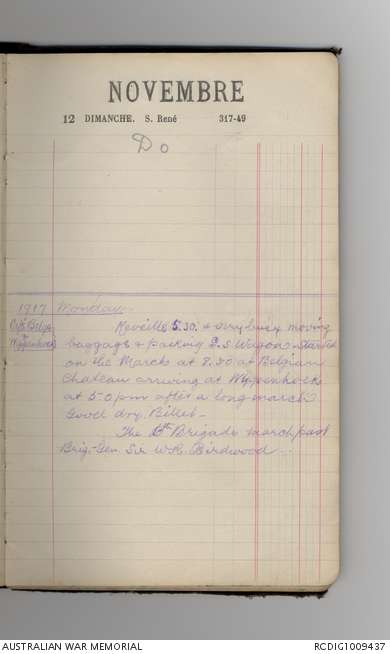 NOVEMBRE
12 DIMANCHE. S. René 317-49
Do
1917 Monday.
Reveille 5.30. & very busy moving
baggage & packing G.S Wagons. Started
on the March at 8.30 at Belgian
Chateau arriving at Wippenhoek
at 5-0 pm after a long march
Good dry Billet -
The 6th Brigade march past
Brig-Gen. Sir W.R. Birdwood
Wippenhoek
AUSTRALIAN WAR MEMORIAL
RCDIG1009437